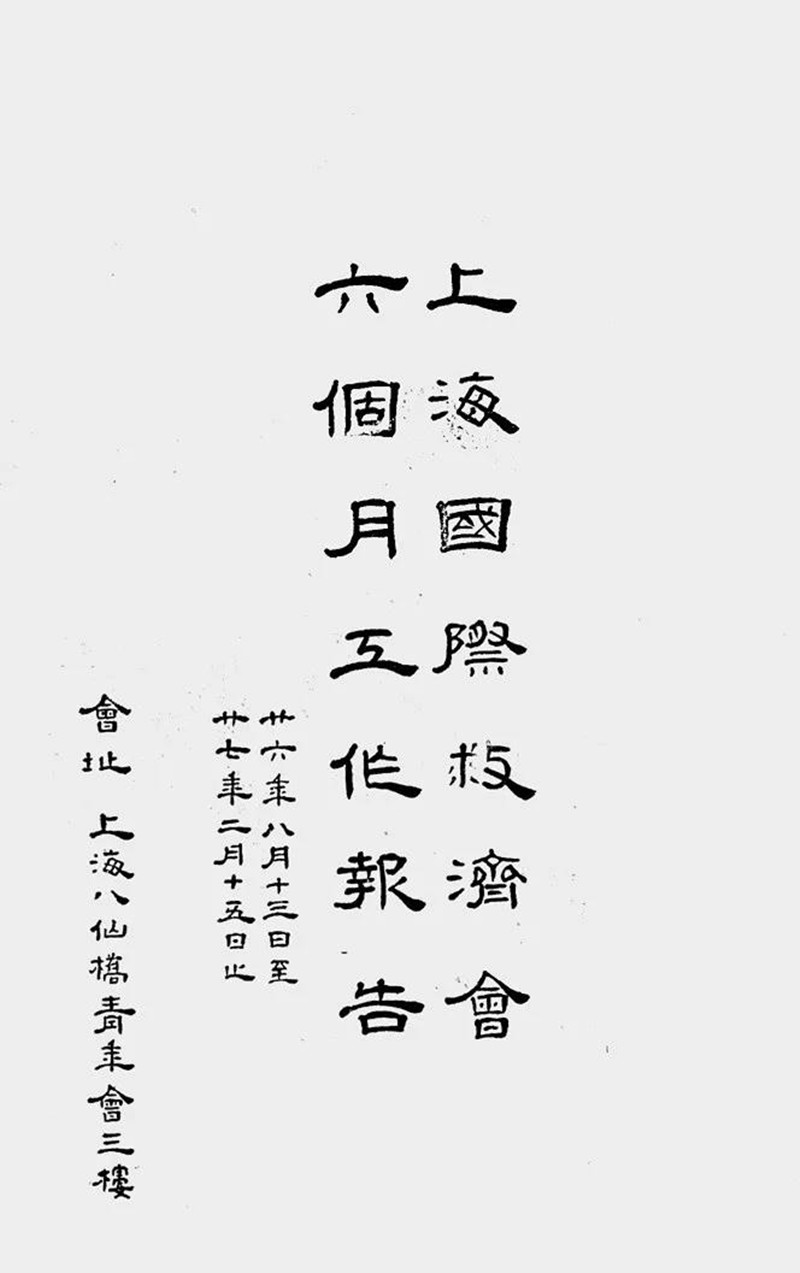 上海國際救濟會
六個月工作報告
廿六年八月十三日至
廿七年二月十五日止
會址 上海八仙橋青年會三樓